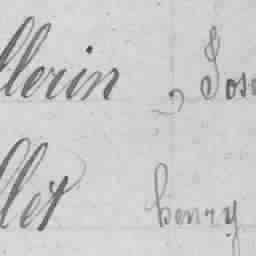 llerin, Jose
llet henry